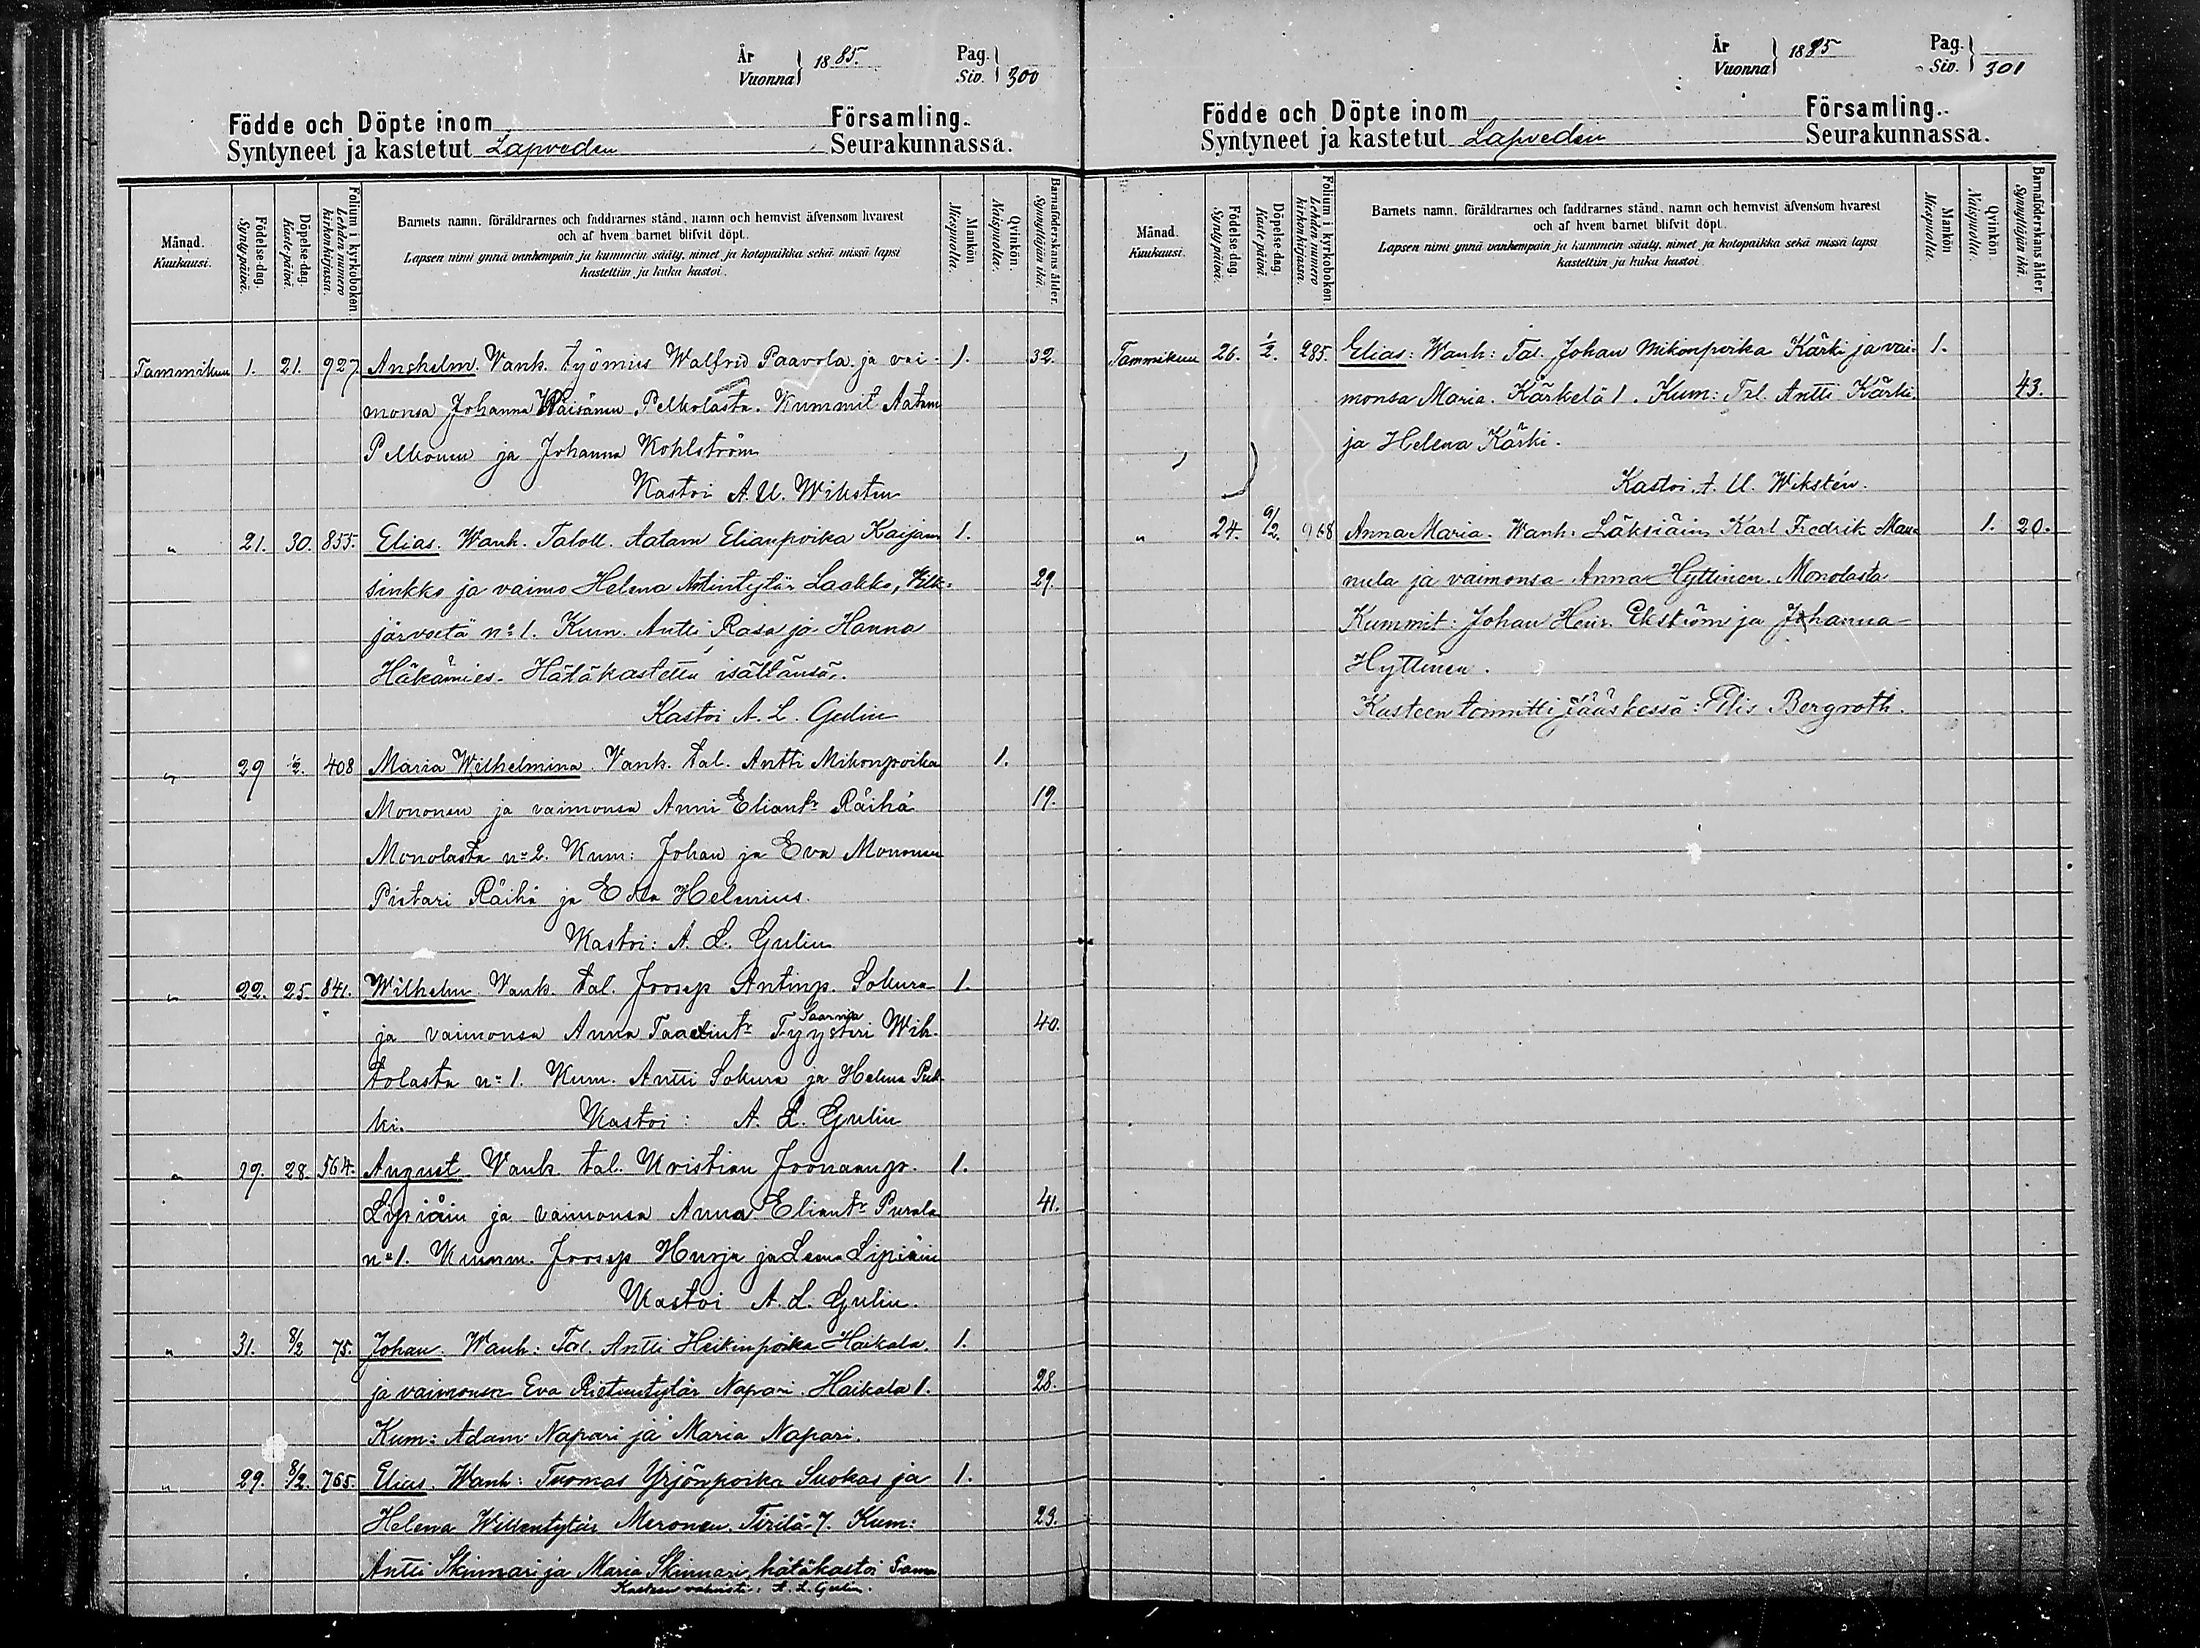 År
Vuonna } 1885. Pag.
Siv. } 300
Födde och Döpte inom Församling.
Syntyneet ja kastetut Lapveden Seurakunnassa.
Månad.
Kuukausi.
Födelse-dag.
Syntypäivä.
Döpelse-dag.
Kastepäivä.
Folium i kyrkoboken
Lehden numero
kirkonkirjassa.
Barnets namn, föräldrarnes och faddrarnes stånd, namn och hemvist äfvensom hvarest
och af hvem barnet blifvit döpt.
Lapsen nimi ynnä vanhempain ja kummein sääty, nimet ja kotopaikka sekä missä lapsi
kastettiin ja kuka kastoi.
Mankön.
Miespuolta.
Qvinkön.
Naispuolta.
Barnaföderskans ålder.
Synnyttäjän ikä.
Tammikuu 1. 21. 927 Anshelm. Vanh. työmies Walfrid Paavola ja vai- 1. 32.
monsa Johanna Väisänen Pelkolasta. Kummit Aatam
Pelkonen ja Johanna Kohlström
Kastoi A. U. Wiksten
" 21. 30. 855. Elias. Wanh. Taloll. Aatam Elianpoika Kaijan- 1.
sinkko ja vaimo Helena Antintytär Laakko, Hilk- 29.
järveltä n:o 1. Kum. Antti Rasa ja Hanna
Häkämies. Hätäkastettu isältänsä.
Kastoi A. L. Gulin
" 29 1/2. 408 Maria Wilhelmina. Vanh. tal. Antti Mikonpoika 1.
Mononen ja vaimonsa Anni Eliant:r Räihä 19.
Monolasta n:o 2. Kum: Johan ja Eva Mononen
Pietari Räihä ja Edla Helenius.
Kastoi: A. L. Gulin
" 22. 25. 841. Wilhelm Vanh. tal. Joosep Antinp. Sokura 1.
Saarnia
ja vaimonsa Anna Taavetint:r Tyysteri Wih- 40.
tolasta n:o 1. Kum. Antti Sokura ja Helena Puk-
ki. Kastoi: A. L. Gulin
" 27. 28. 564. August Vanh. tal. Kristian Joonaanp. 1.
Lipiäin ja vaimonsa Anna Eliant:r Purala 41.
n:o 1. Kumm. Joosep Hurja ja Leena Lipiäin
Kastoi A. L. Gulin.
" 31. 8/2 75. Johan. Wanh: Tal. Antti Heikinpoika Haikala. 1.
ja vaimonsa Eva Pietarintytär Napari. Haikala 1. 28.
Kum: Adam Napari ja Maria Napari.
" 29. 8/2. 765. Elias. Wanh: Tuomas Yrjönpoika Suokas ja 1.
Helena Willentytär Meronen, Tirilä 7. Kum: 23.
Antti Skinnari ja Maria Skinnari, hätäkastoi sama
Kasteen vahvisti: A. L. Gulin.
År
Vuonna } 1885 Pag.
Siv. } 301
Födde och Döpte inom Församling.
Syntyneet ja kastetut Lapveden Seurakunnassa.
Månad.
Kuukausi.
Födelse-dag.
Syntypäivä.
Döpelse-dag.
Kastepäivä.
Folium i kyrkoboken
Lehden numero
kirkonkirjassa.
Barnets namn, föräldrarnes och faddrarnes stånd, namn och hemvist äfvensom hvarest
och af hvem barnet blifvit döpt.
Lapsen nimi ynnä vanhempain ja kummein sääty, nimet ja kotopaikka sekä missä lapsi
kastettiin ja kuka kastoi.
Mankön
Miespuolta.
Qvinkön
Naispuolta.
Barnaföderskans ålder.
Synnyttäjän ikä.
Tammikuu 26. 1/2. 285. Elias: Wanh: Tal. Johan Mikonpoika Kärki ja vai- 1.
monsa Maria. Kärkelä 1. Kum: Tal. Antti Kärki 43.
ja Helena Kärki.
Kastoi A. U. Wikstén.
" 24. 9/2. 968 Anna Maria. Wanh. Läksiäin. Karl Fredrik Man- 1. 20.
nula ja vaimonsa Anna Hyttinen. Monolasta
Kummit: Johan Henr. Ekström ja Johanna
Hyttinen.
Kasteen toimitti Jääskessä: Elis Bergroth.